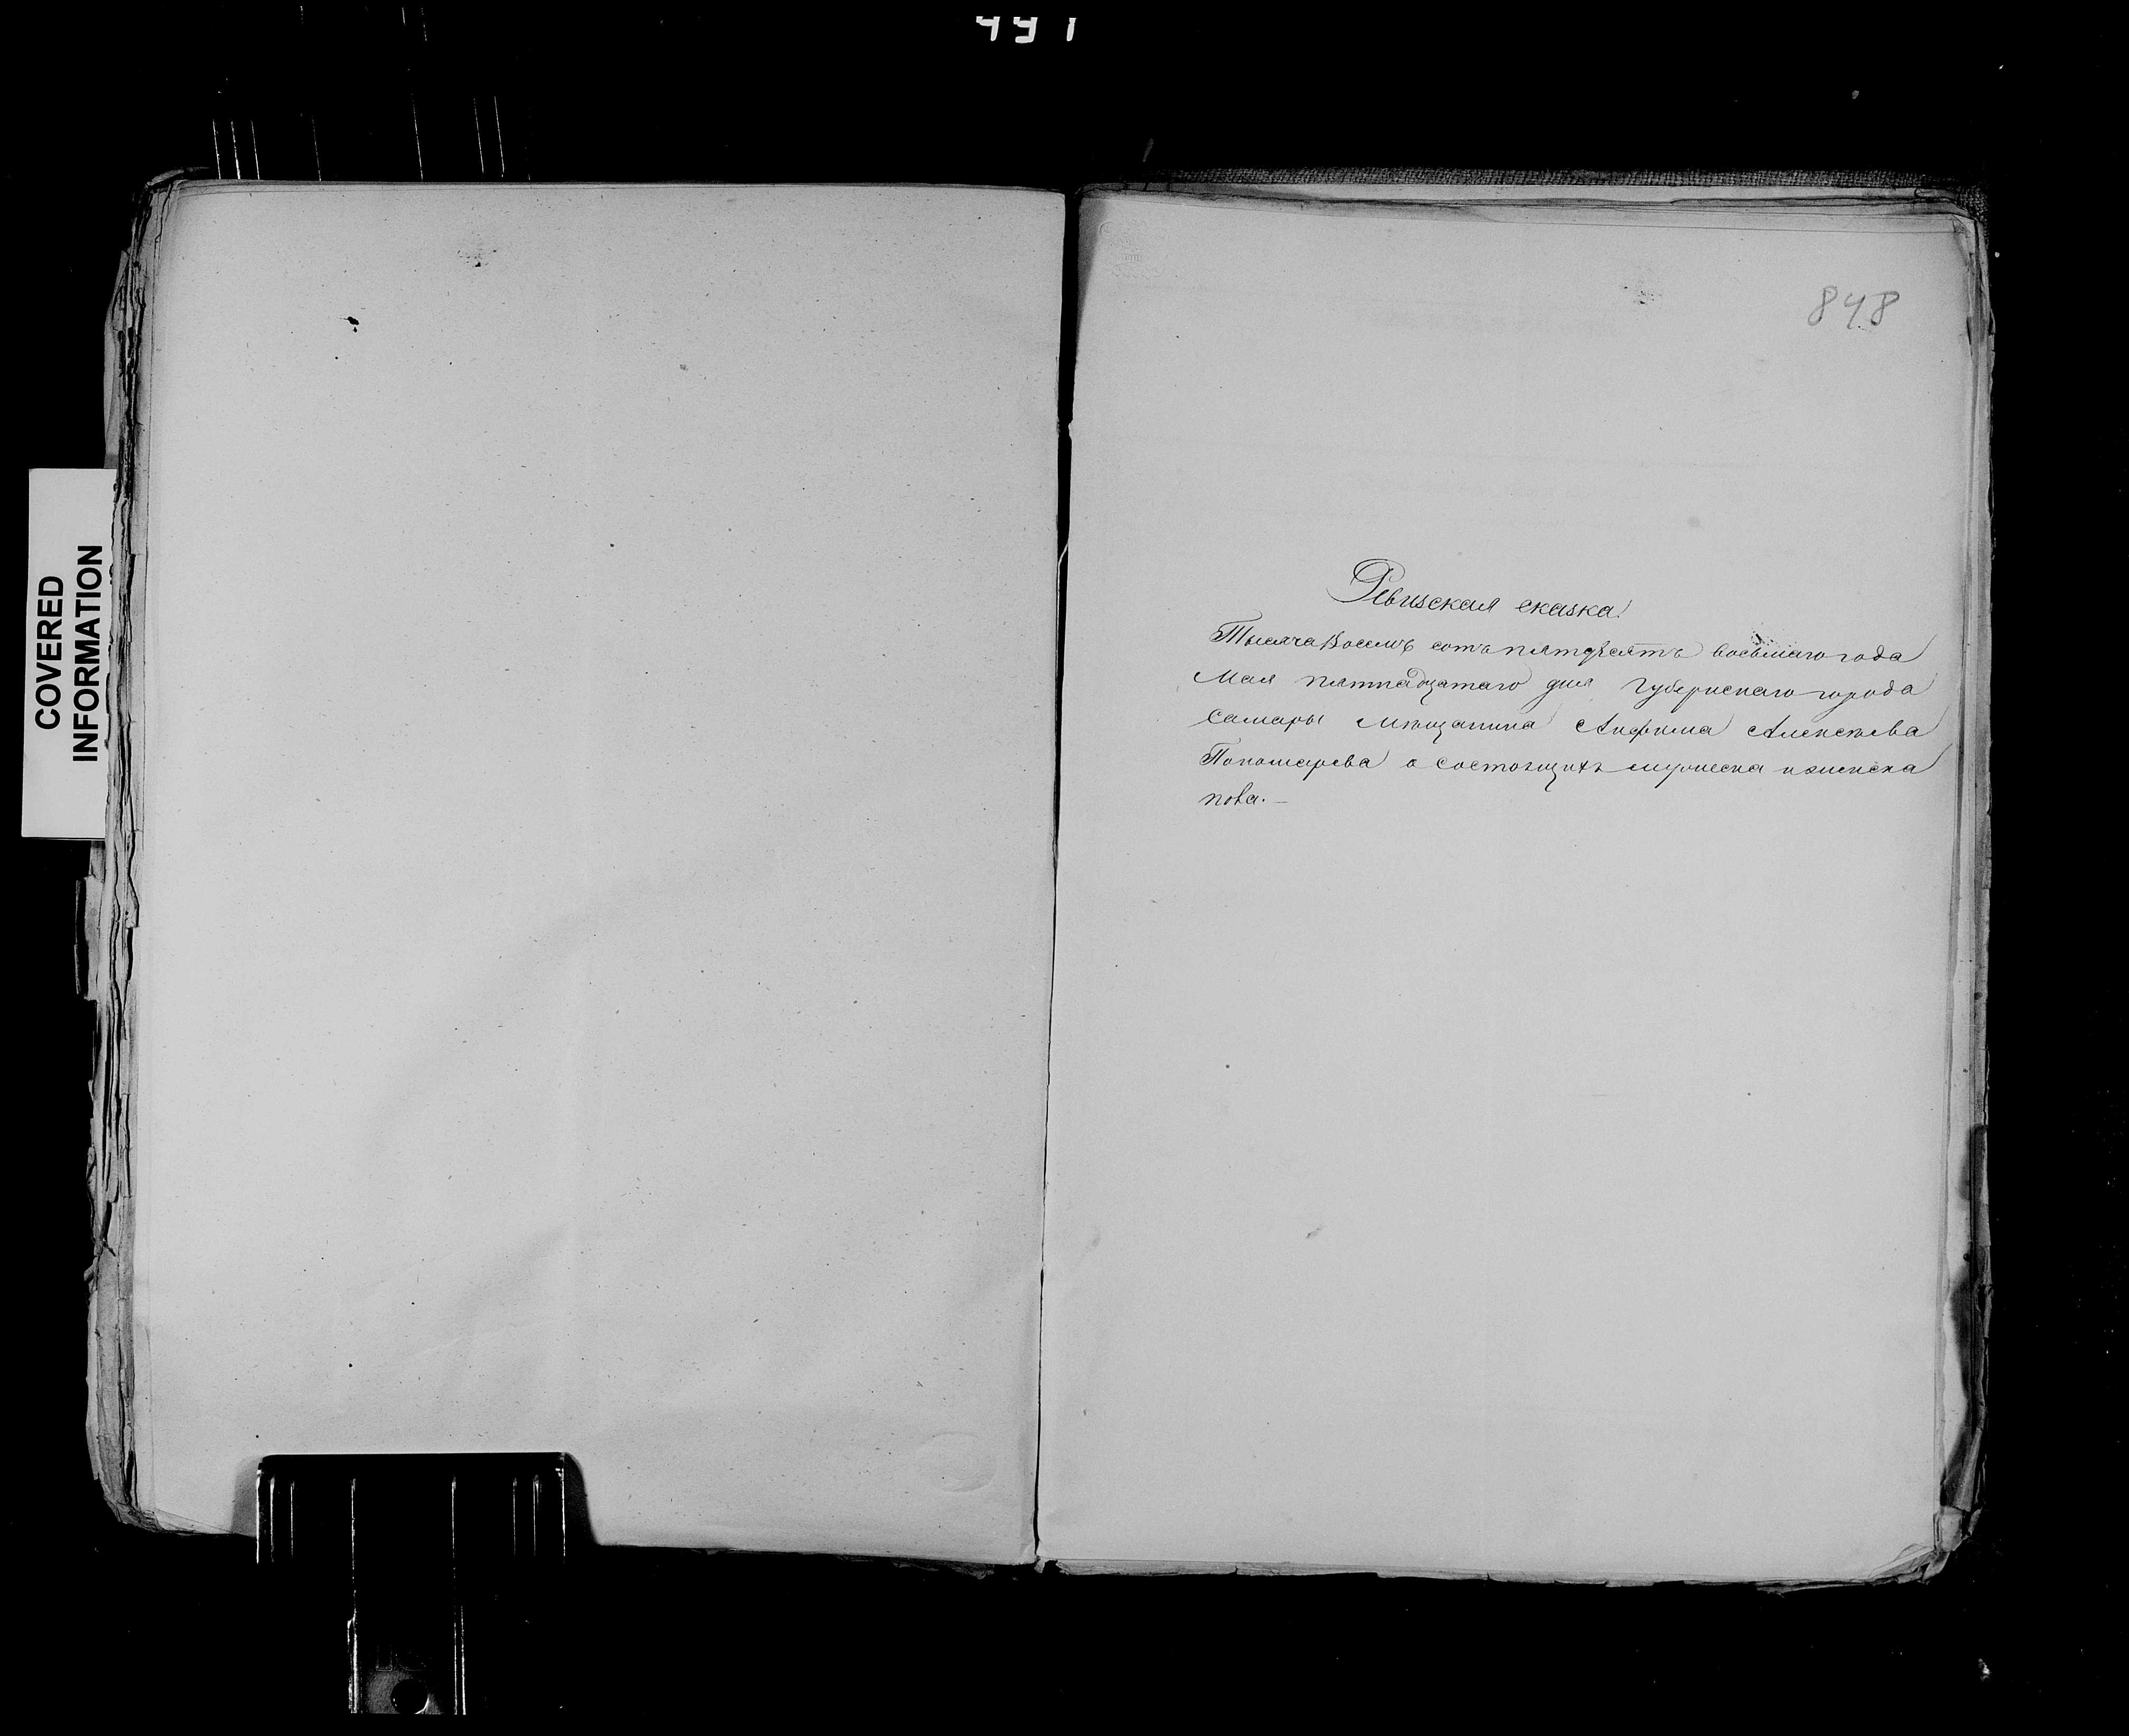 491
848
COVERED
INFORMATION
Ревизская сказка
Тысяча восемь сотъ пятдесятъ восьмаго года
Мая пятнадцатаго дня Губернскаго города
Самары Мѣщанина Анфима Алексѣева
Пономарева о состоящихъ мужеска и женска
пола. –